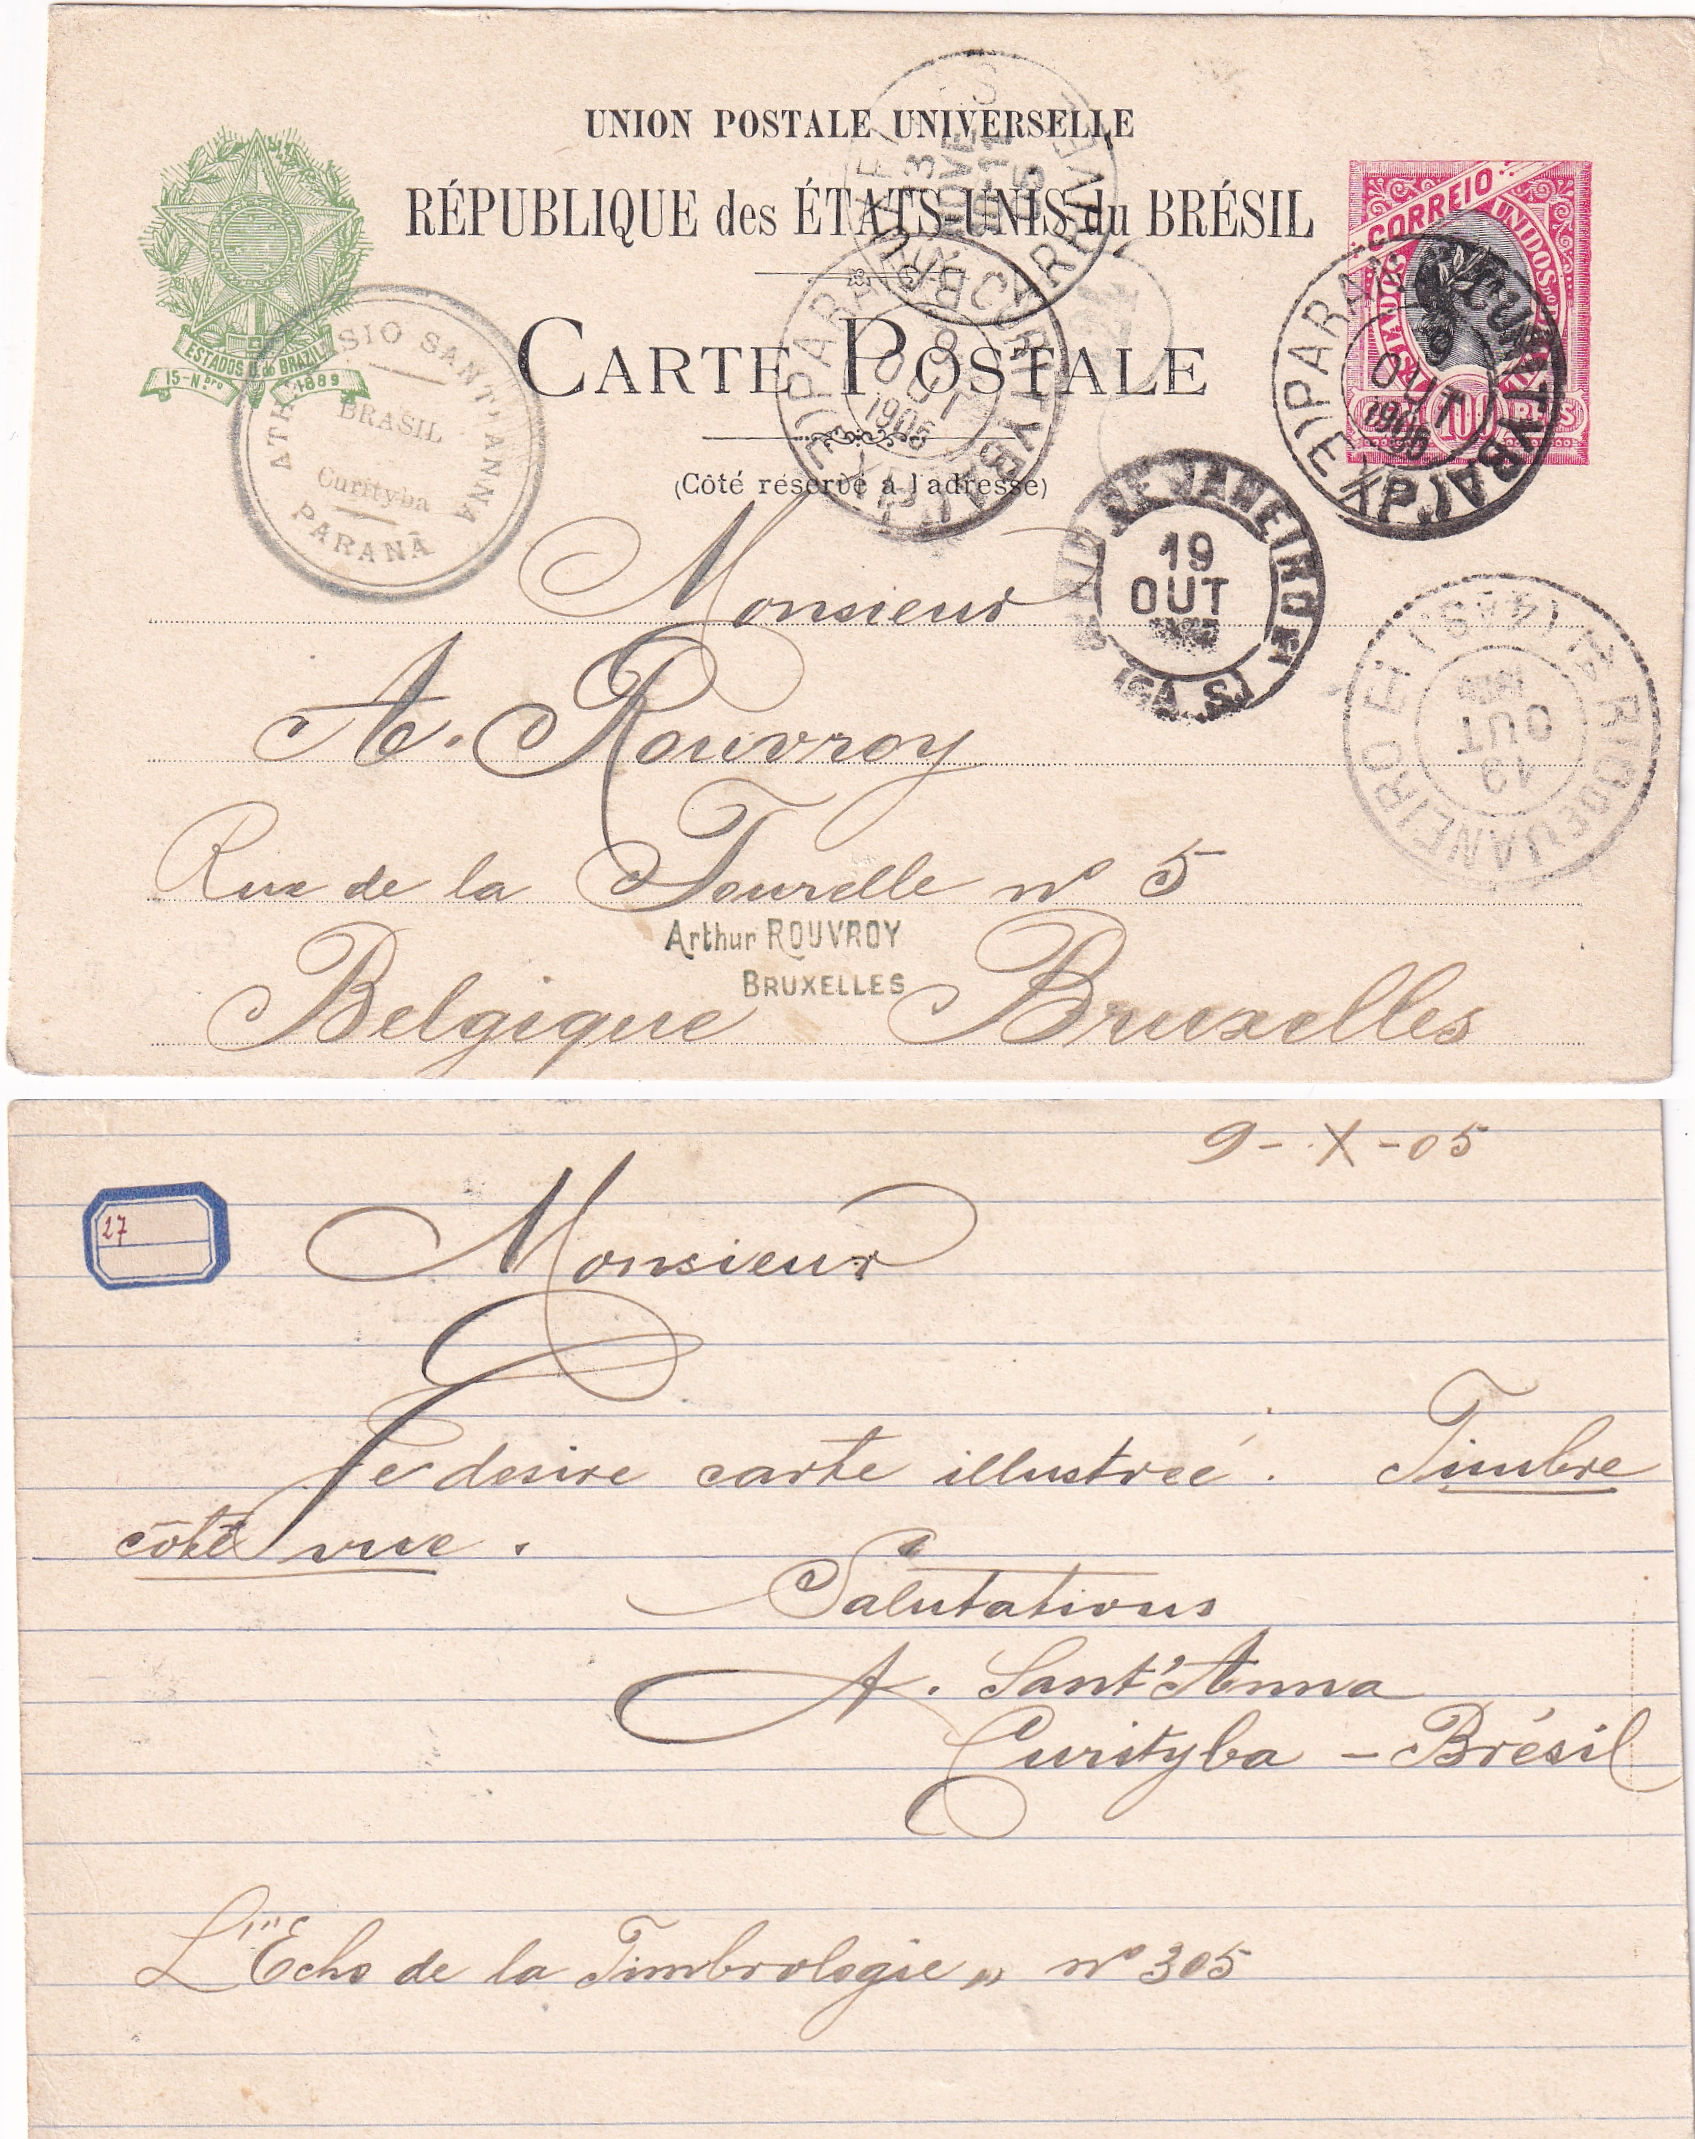 UNION POSTALE UNIVERSELLE
RÉPUBLIQUE des ÉTATS-UNIS du BRÉSIL
CARTE POSTALE
(Côté réservé à l'adresse)
ESTADOS U. do BRAZIL
15-Nbro 1889
CORREIO
ESTADOS UNIDOS do BRASIL
100 REIS
SIO SANT'ANNA
BRASIL
Curityba
PARANÁ
BRUXELLES
ARRIVEE
13
NOVE
5
CURITYBA (PARANÁ)
9
OUT
1905
CURITYBA (PARANÁ)
9
OUT
1905
RIO DE JANEIRO
19
OUT
(6A S.)
RIO DE JANEIRO
19
OUT
Monsieur
A. Rouvroy
Rue de la Tourelle nº 5
Arthur ROUVROY
BRUXELLES
Belgique Bruxelles
9-X-05
27
Monsieur
Je desire carte illustreé. Timbre
côté vue.
Salutations
A. Sant'Anna
Curityba – Brésil
L'"Echo de la Timbrologie" nº 305